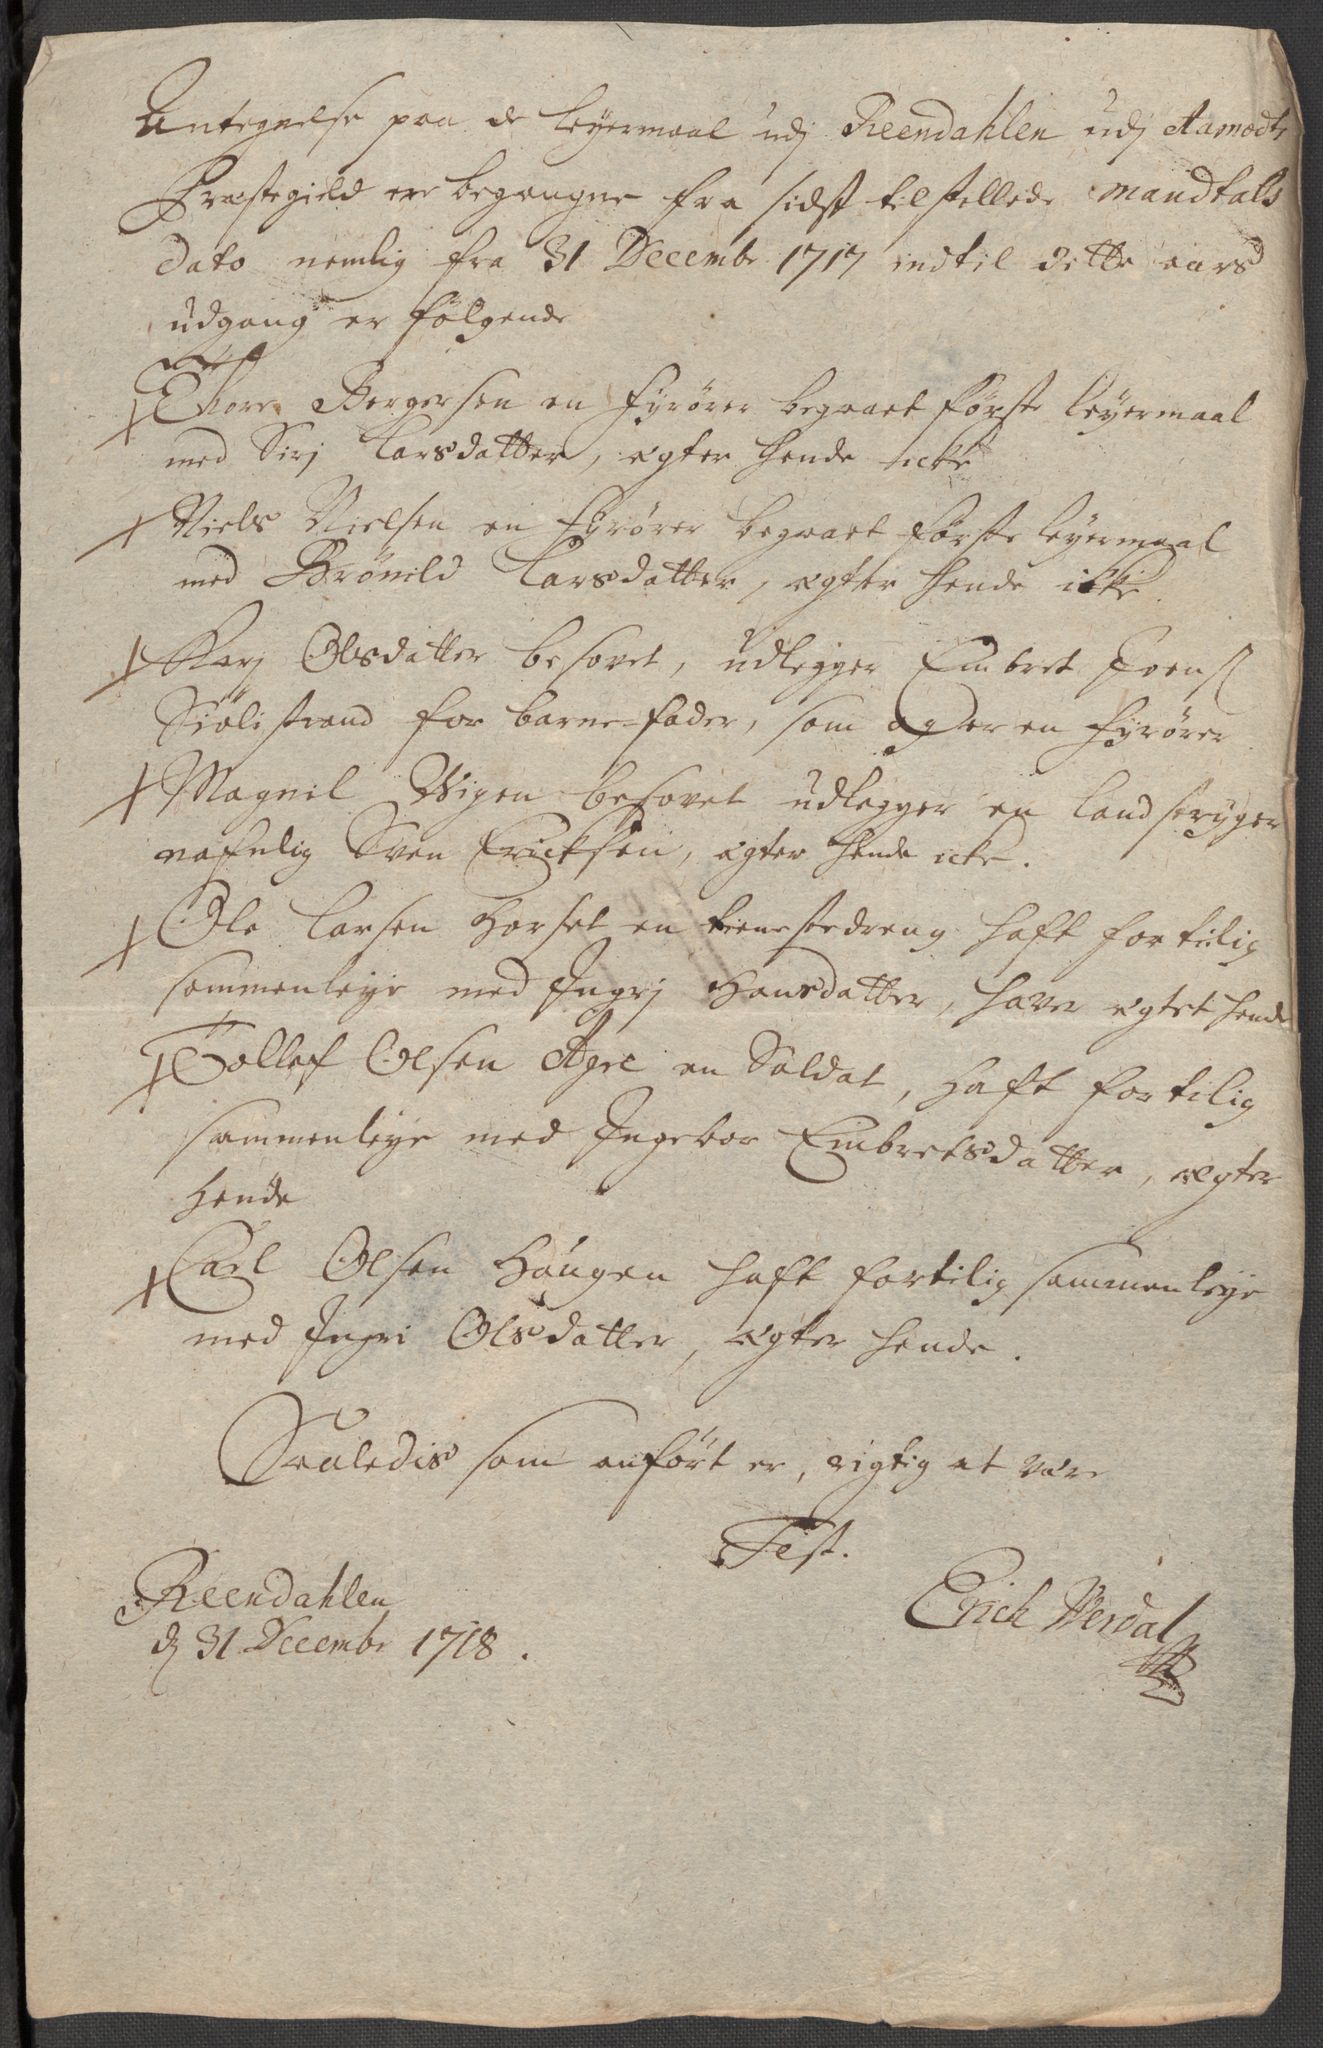 Antegnelse paa de leyermaal udj Reendahlen udj Aamodts
Præstegield ere begangne fra sidst tilstellede Mandtals
dato nemlig fra 31 Decembr 1717 indtil dette aars
udgang er følgende
+ Thore Bergersen en fyrører begaaet første leyermaal
med Sirj Larsdatter, ægter hende icke
+ Niels Nielsen en fyrører begaaet første leyermaal
med Brönild Larsdatter, ægter hende icke
+ Karj Olsdatter besovet, udlegger Embret
Siölistrand for barne-fader, som og er en fyrører
+ Magnil Wigen besovet udlegger en landstryger
nafnlig Sven Ericksen, ægter hende icke.
+ Ole Larsen Horset en tienestedreng haft fortilig
sammenleye med Jngrj Hansdatter, haver ægtet hende
+ Tollef Olsen Agre en Soldat, haft fortilig
sammenleye med Jngebor Embretsdatter, ægter
hende
+ Carl Olsen Haugen haft fortilig sammenleye
med Jngri Olsdatter, ægter hende.
Saaledis som anført er, rigtig at være
Test.
Reendahlen
d 31 Decembr 1718.
Erich Werdal